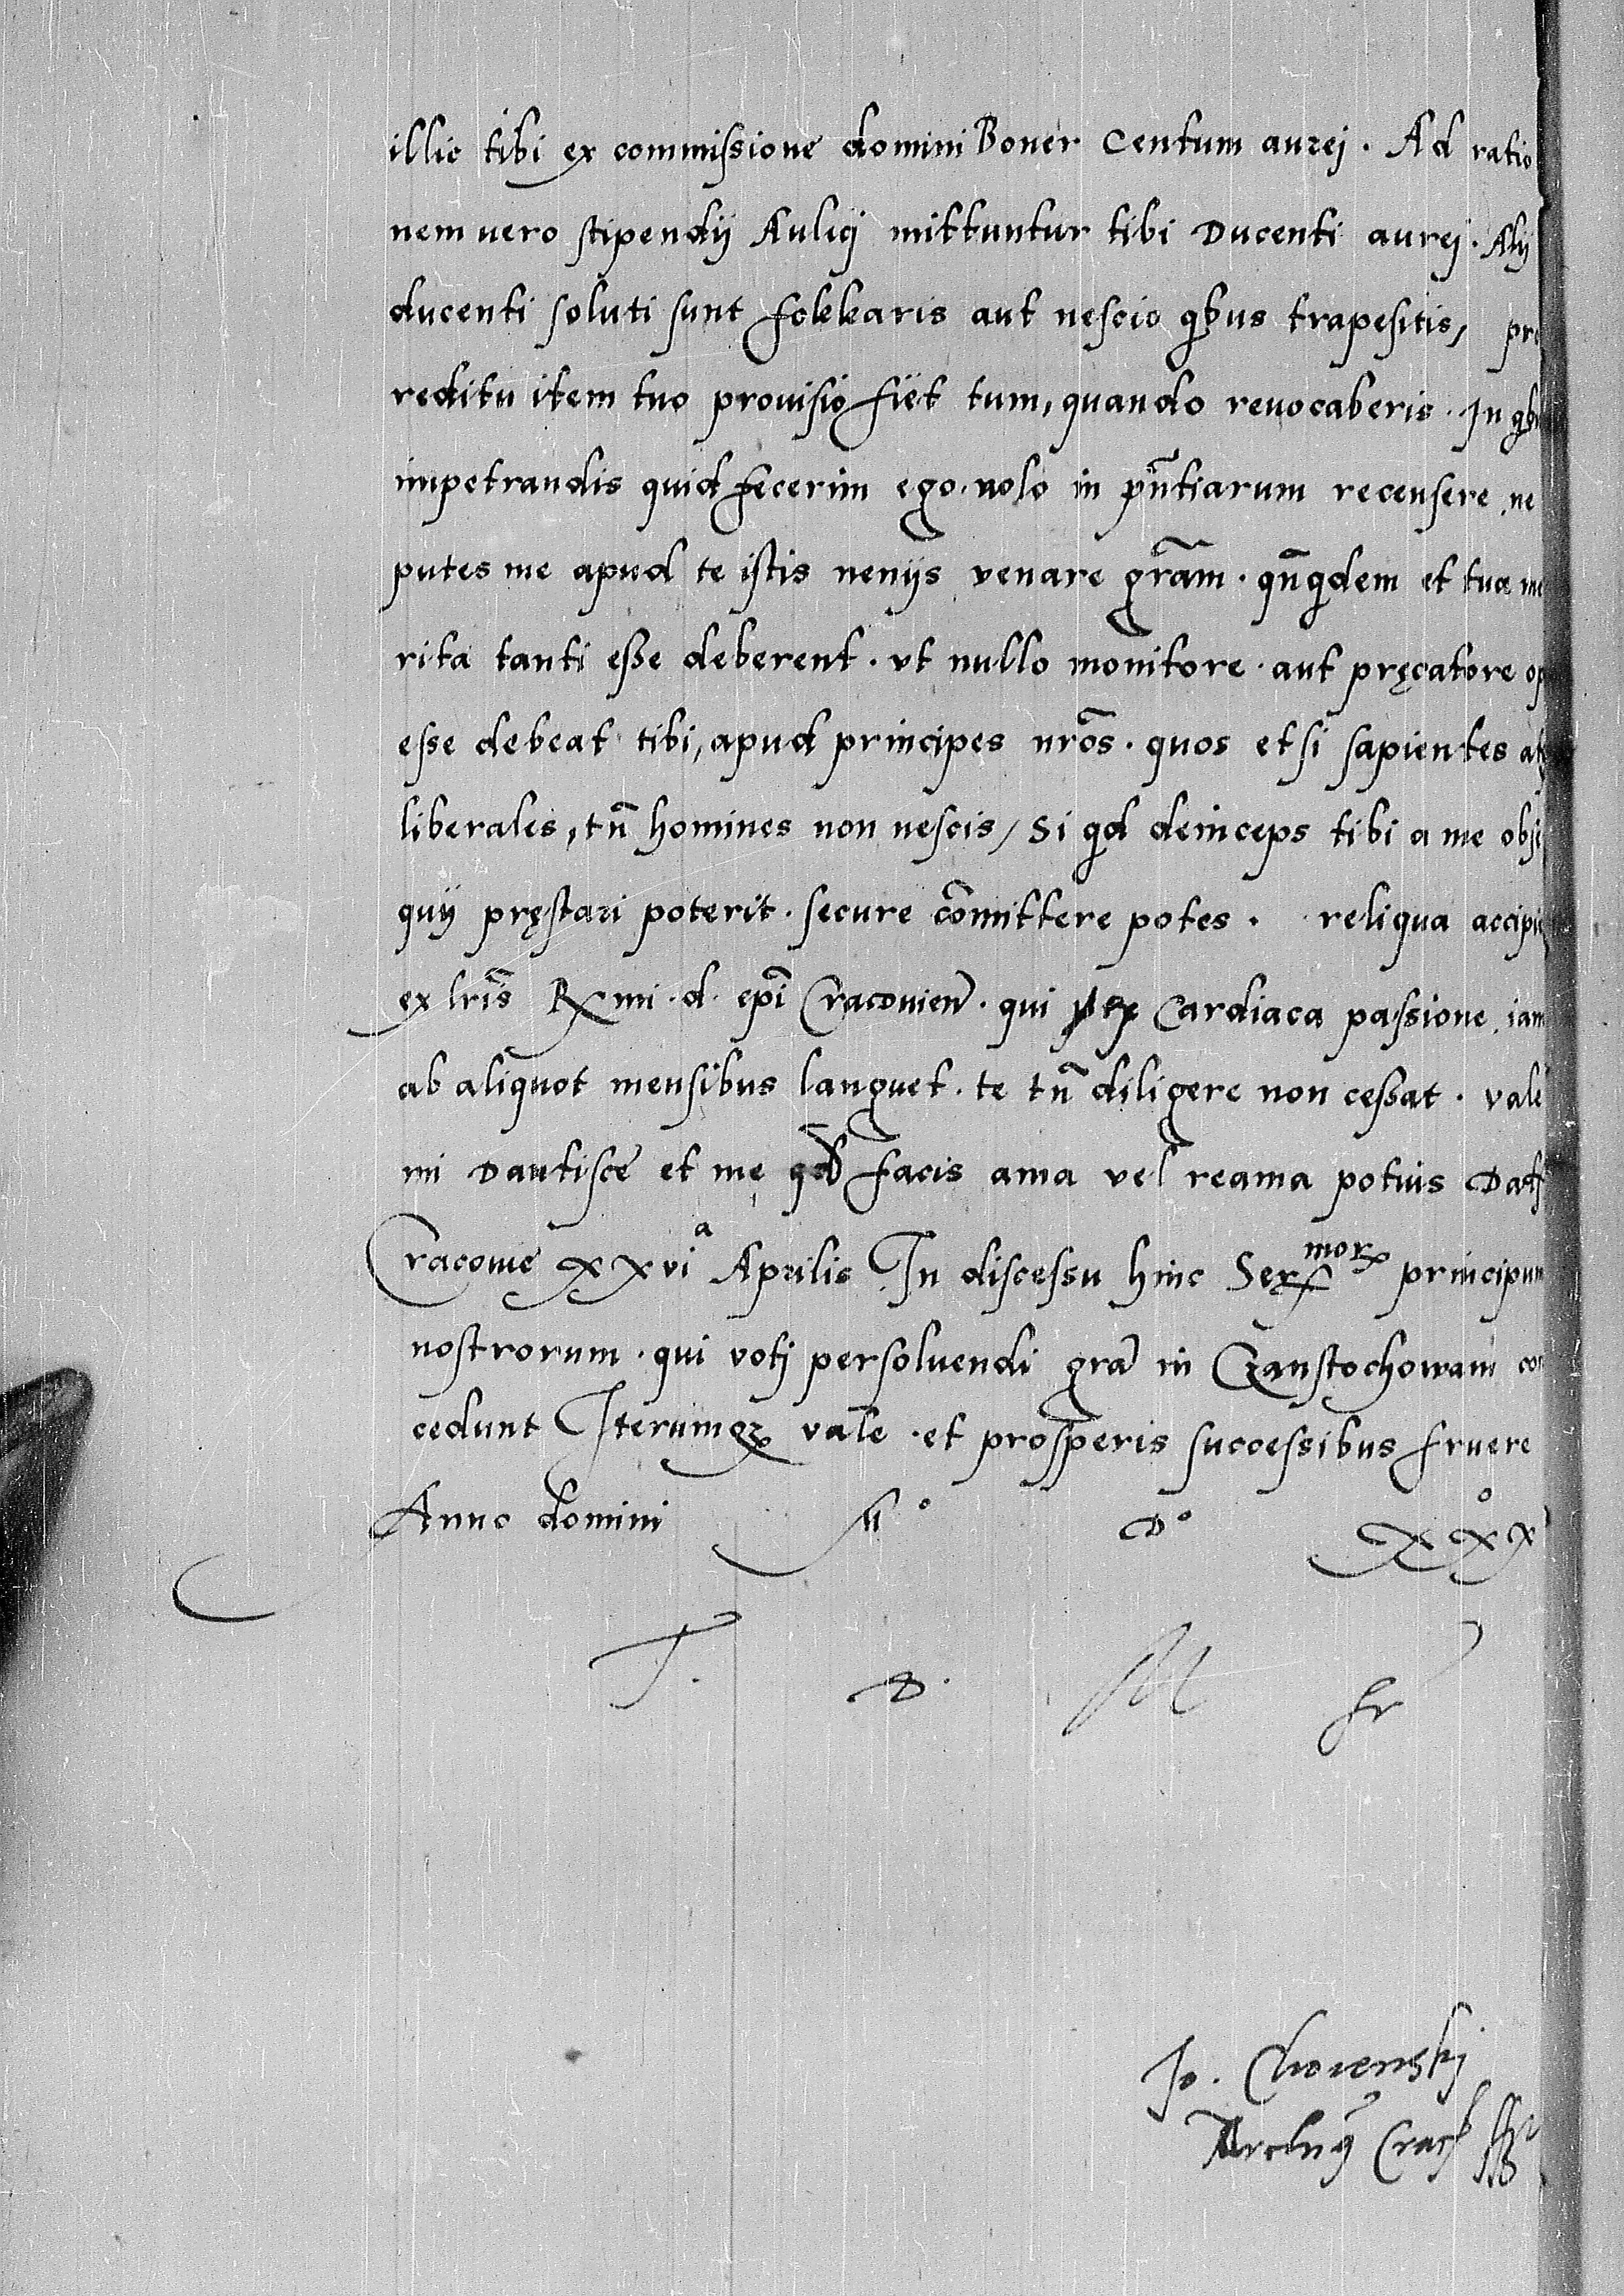 illic tibi ex commissione domini Boner Centum aurej . Ad ratio
nem vero stipendij Aulicj mittuntur tibi Ducenti aurej . Alij
ducenti soluti sunt Fokkaris aut nescio qbus trapesitis, pro
reditu item tuo prouisio fiet tum, quando reuocaberis . In qbu
impetrandis quid fecerim ego . nolo in pñtiarum recensere . ne
putes me apud te istis nenijs venare grãm . qñqdem et tua me
rita tanti esse deberent . vt nullo monitore . aut pręcatore op
esse debeat tibi, apud principes nrõs . quos etsi sapientes atq
liberales, tñ homines non nescis / Si qd deinceps tibi a me obse
quij pręstari poterit . secure cõmittere potes . reliqua accipie
ex lrĩs Rmi . d . epĩ Cracouien . qui Cardiaca passione . iam
ab aliquot mensibus languet . te tñ diligere non cessat . vale
mi Dantisce et me qd facis ama vel reama potius Dat
Cracouie xxvi^a Aprilis In discessu hinc Ser^mor principum
nostrorum . qui votj persoluendi gra in Czanstochowam con
cedunt Iterumq vale . et prosperis successibus fruere
Anno domini M° D° XXX°
T. D. M fr
Jo . Chovenskj
Archiy Crac